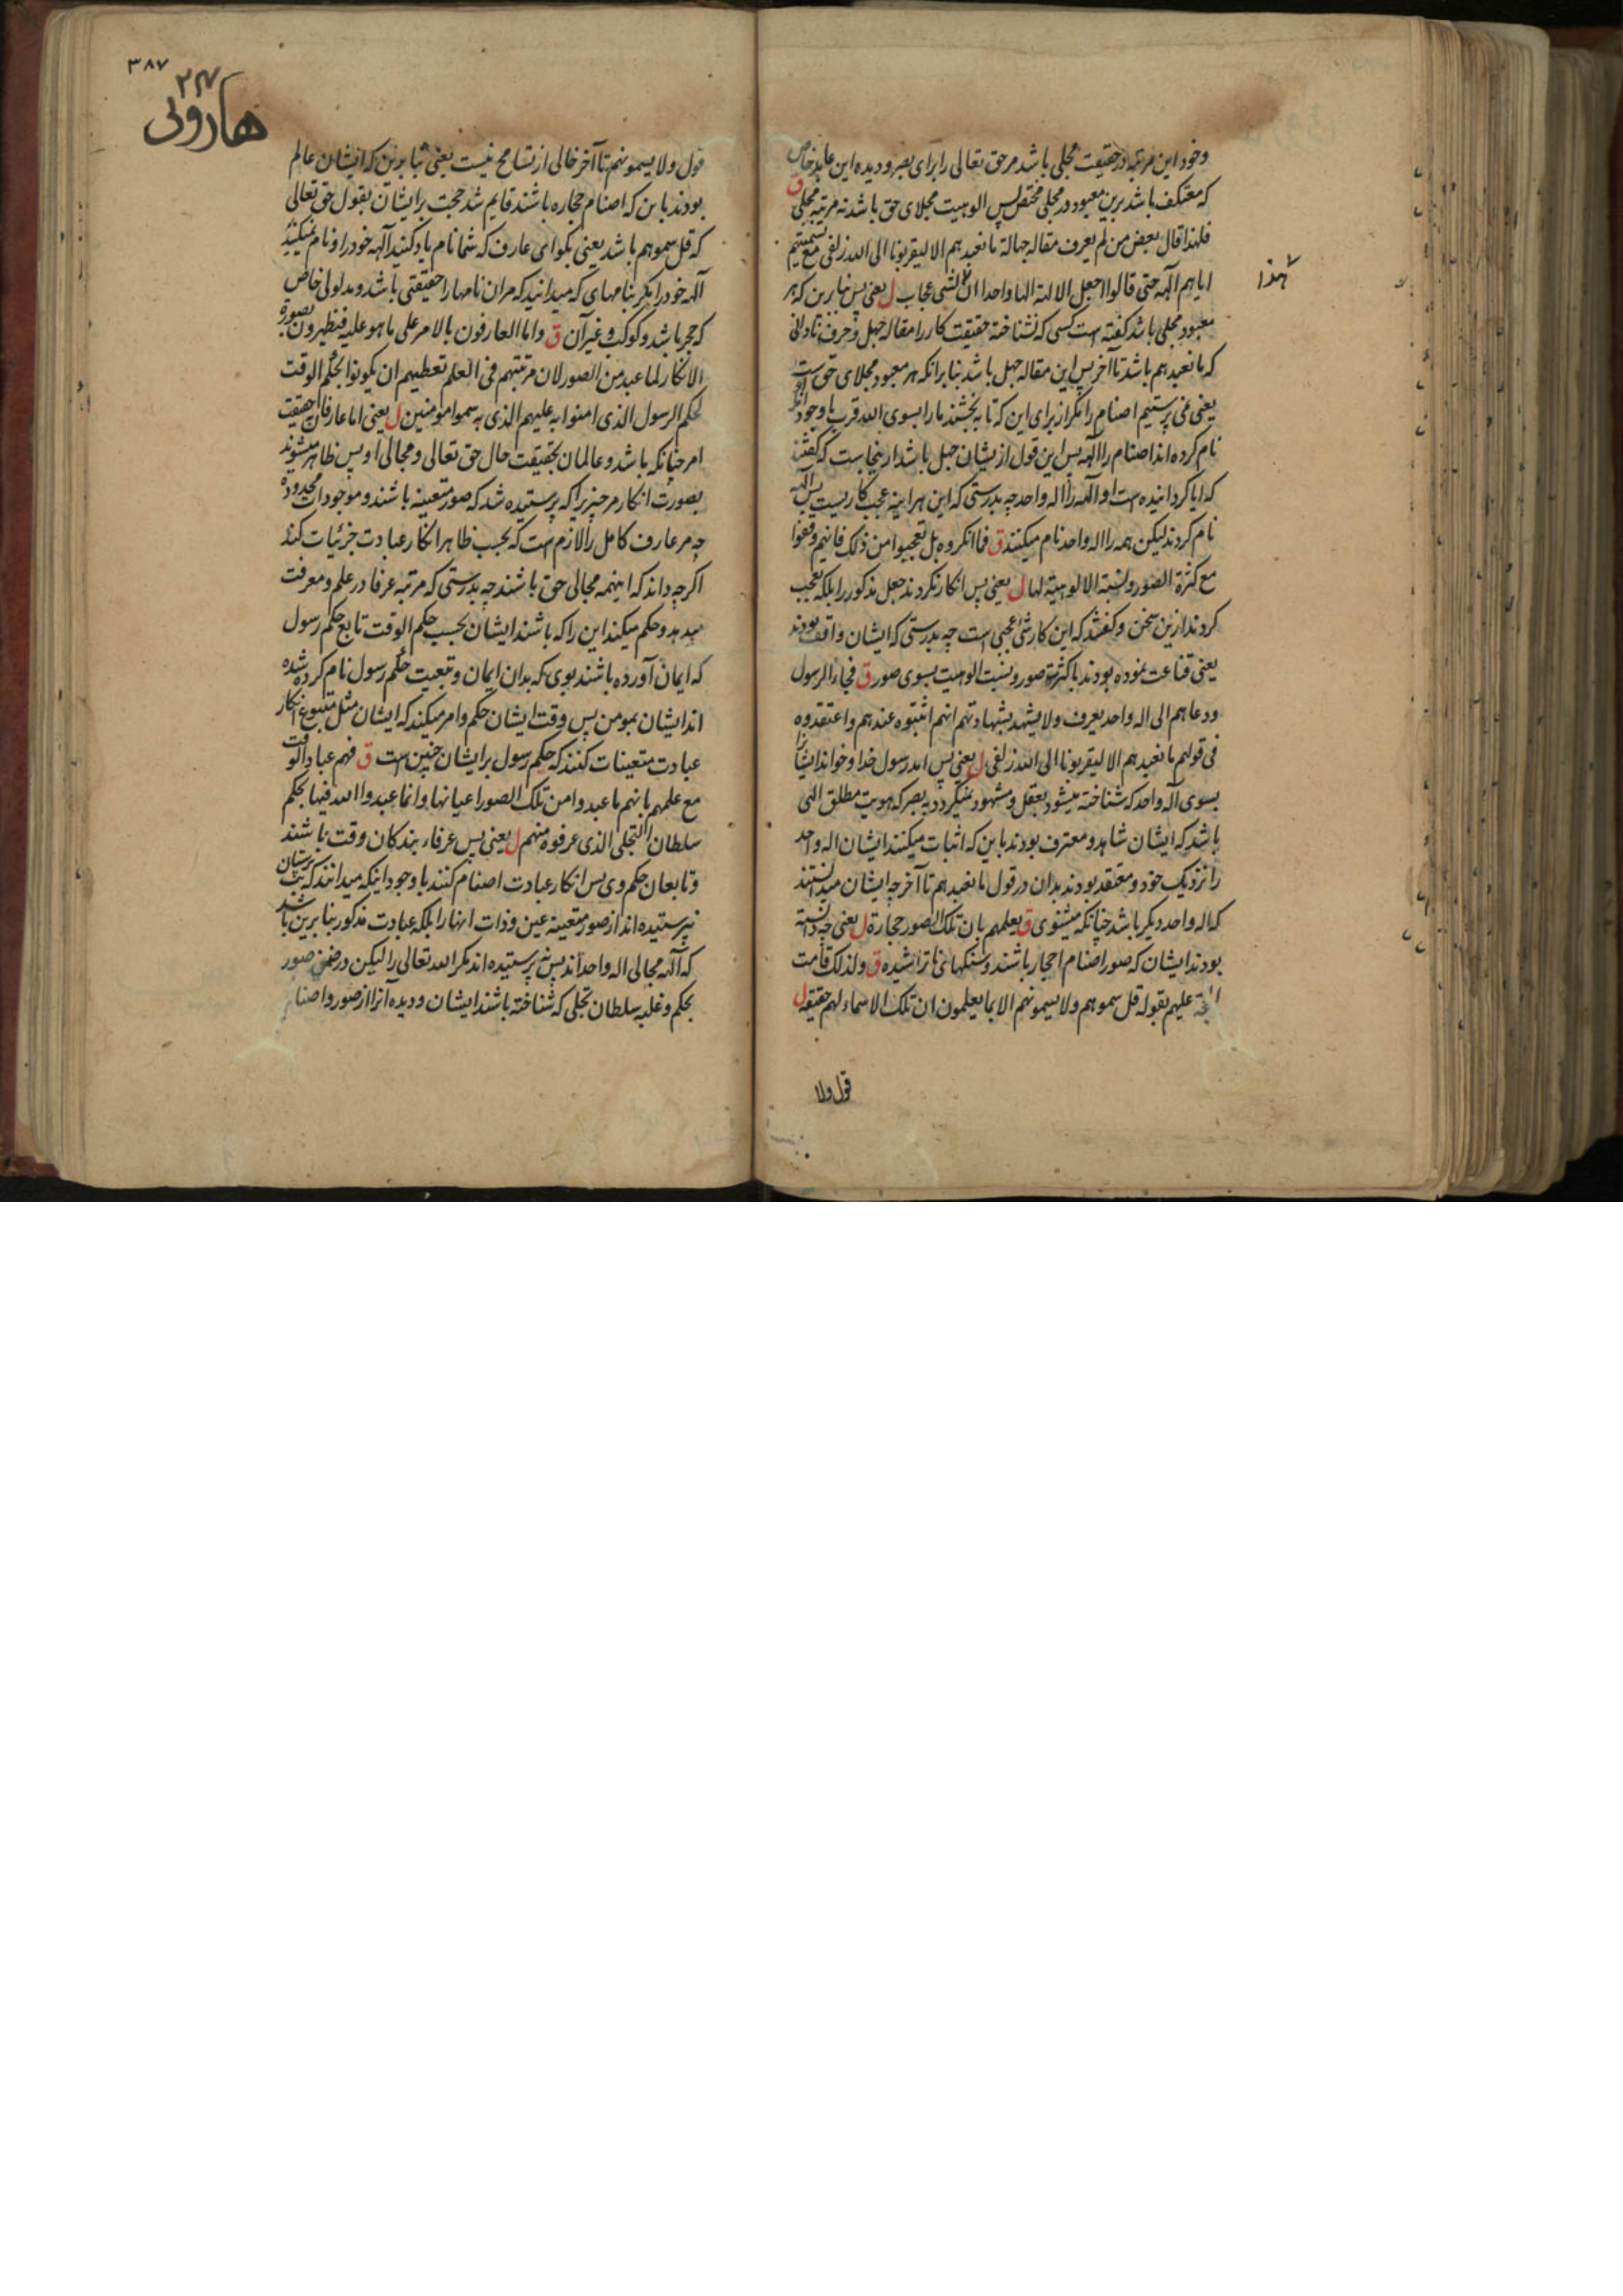 وخود این مرتبه در حقیقت مجلی باشد مر حق تعالی را برای بصر و دیده این عابد خاص
که معتکف باشد برین معبود در مجلی مختص پس الوهیت مجلای حق باشد نه مرتبه مجلی ق
فلهذا قال بعض من لم یعرف مقاله جهالة ما نعبدهم الا لیقربونا الی الله زلفی مع تسمیتهم
ایاهم آلهة حتی قالوا اجعل الالهة الها واحدا ان هذا لشی عجاب ل یعنی پس بنا برین که هر
هذا
معبود مجلی باشد گفته است کسی که نشناخته حقیقت کار را مقاله جهل و حرف نادانی
که ما نعبدهم باشد تا آخر پس این مقاله جهل باشد بنا بر انکه هر معبود مجلای حق است
یعنی نمی پرستیم اصنام را مگر از برای این که تا به بخشند ما را بسوی الله قرب با وجود آنکه
نام کرده اند اصنام را آلهه پس این قول از یشان جهل باشد از ینجاست که گفتند
که ایا گردانیده است او آلهه را اله واحد چه بدرستی که این هر اینه عجب کاریست پس آلهه
نام کردند لیکن همه را اله واحد نام میکنند ق فما انکروه بل تعجبوا من ذلک فانهم وقفوا
مع کثرة الصور ونسبة الالوهیة لها ل یعنی پس انکار نکردند جعل مذکور را بلکه تعجب
کردند ازین سخن و گفتند که این کار شئ عجبی است چه بدرستی که ایشان واقف بودند
یعنی قناعت نموده بودند با کثرت صور و نسبت الوهیت بسوی صور ق فجاء الرسول
ودعاهم الی اله واحد یعرف ولا یشهد بشهادتهم انهم اثبتوه عندهم واعتقدوه
فی قولهم ما نعبدهم الا لیقربونا الی الله زلفی ل یعنی پس امد رسول خدا و خواند ایشانرا
بسوی آله واحد که شناخته میشود بعقل و مشهود نمیگردد به بصر که هویت مطلق الهی
باشد که ایشان شاهد و معترف بودند باین که اثبات میکنند ایشان اله واحد
را نزدیک خود و معتقد بودند بدان در قول ما نعبدهم تا آخر چه ایشان میدانستند
که اله واحد دیگر باشد چنانکه میشنوی ق بعلمهم بان تلک الصور حجارة ل یعنی چه دانسته
بودند ایشان که صور اصنام احجار باشند و سنگهای ناتراشیده ق ولذلک قامت
الحجة علیهم بقوله قل سموهم ولا یسمونهم الا بما یعلمون ان تلک الاسماء لهم حقیقة ل
قول ولا
۳۸۷
۳۸۷
هارونی
قول ولا یسمونهم تا آخر خالی از تسامح نیست یعنی بنا برین که ایشان عالم
بودند باین که اصنام حجاره باشند قایم شد حجت بر ایشان بقول حق تعالی
که قل سموهم باشد یعنی بگو ای عارف که شما نام یاد کنید آلهه خود را و نام نمیکنند
آلهه خود را مگر بنامهای که میدانید که مر ان نامها را حقیقتی باشد و مدلولی خاص
که حجر باشد و کوکب و غیر آن ق واما العارفون بالامر علی ما هو علیه فیظهرون بصورة
الانکار لما عبد من الصور لان مرتبتهم فی العلم تعطیهم ان یکونوا بحکم الوقت
لحکم الرسول الذی امنوا به علیهم الذی به سموا مومنین ل یعنی اما عارفان حقیقت
امر چنانکه باشد و عالمان بحقیقت حال حق تعالی و مجالی او پس ظاهر میشوند
بصورت انکار مر چیزیرا که پرستیده شد که صور متعینه باشند و موجودات محدوده
چه مر عارف کامل را لازم است که بحسب ظاهر انکار عبادت جزئیات کند
اکرچه داند که اینهمه مجالی حق باشند چه بدرستی که مرتبه عرفا در علم و معرفت
میدهد و حکم میکند این را که باشند ایشان بحسب حکم الوقت تابع حکم رسول
که ایمان آورده باشند بوی که بدان ایمان و تبعیت حکم رسول نام کرده شده
اند ایشان بمومن پس وقت ایشان حکم و امر میکند که ایشان مثل متبوع انکار
عبادت متعینات کنند که حکم رسول بر ایشان چنین است ق فهم عباد الوقت
مع علمهم بانهم ما عبدوا من تلک الصور اعیانها وانما عبدوا الله فیها بحکم
سلطان التجلی الذی عرفوه منهم ل یعنی پس عرفاء بندکان وقت باشند
و تابعان حکم وی پس انکار عبادت اصنام کنند با وجود اینکه میدانند که بت پرستان
نپرستیده اند از صور متعینه عین و ذات انها را بلکه عبادت مذکور بنا برین باشد
که آلهه مجالی اله واحد اند پس نه پرستیده اند مکر الله تعالی را لیکن در ضمن صور
بحکم و غلبه سلطان تجلی که شناخته باشند ایشان و دیده آنرا از صور و اصنام